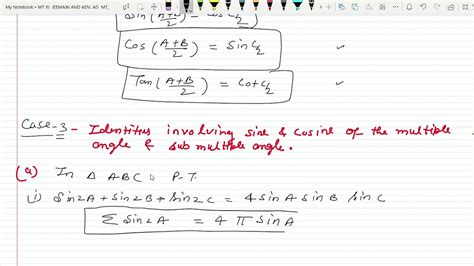 My Notebook » MT XI JEEMAIN AND ADV. AD MT_
Sin(A+B/2) = Cos C/2
Cos(A+B/2) = Sin C/2
Tan(A+B/2) = Cot C/2
Case-3 - Identities involving sine & cosine of the multiple
angle & sub multiple angle.
(a) In Δ ABC P.T.
i) Sin2A + Sin2B + Sin2C = 4 Sin A Sin B Sin C
Σ Sin2A = 4 π Sin A